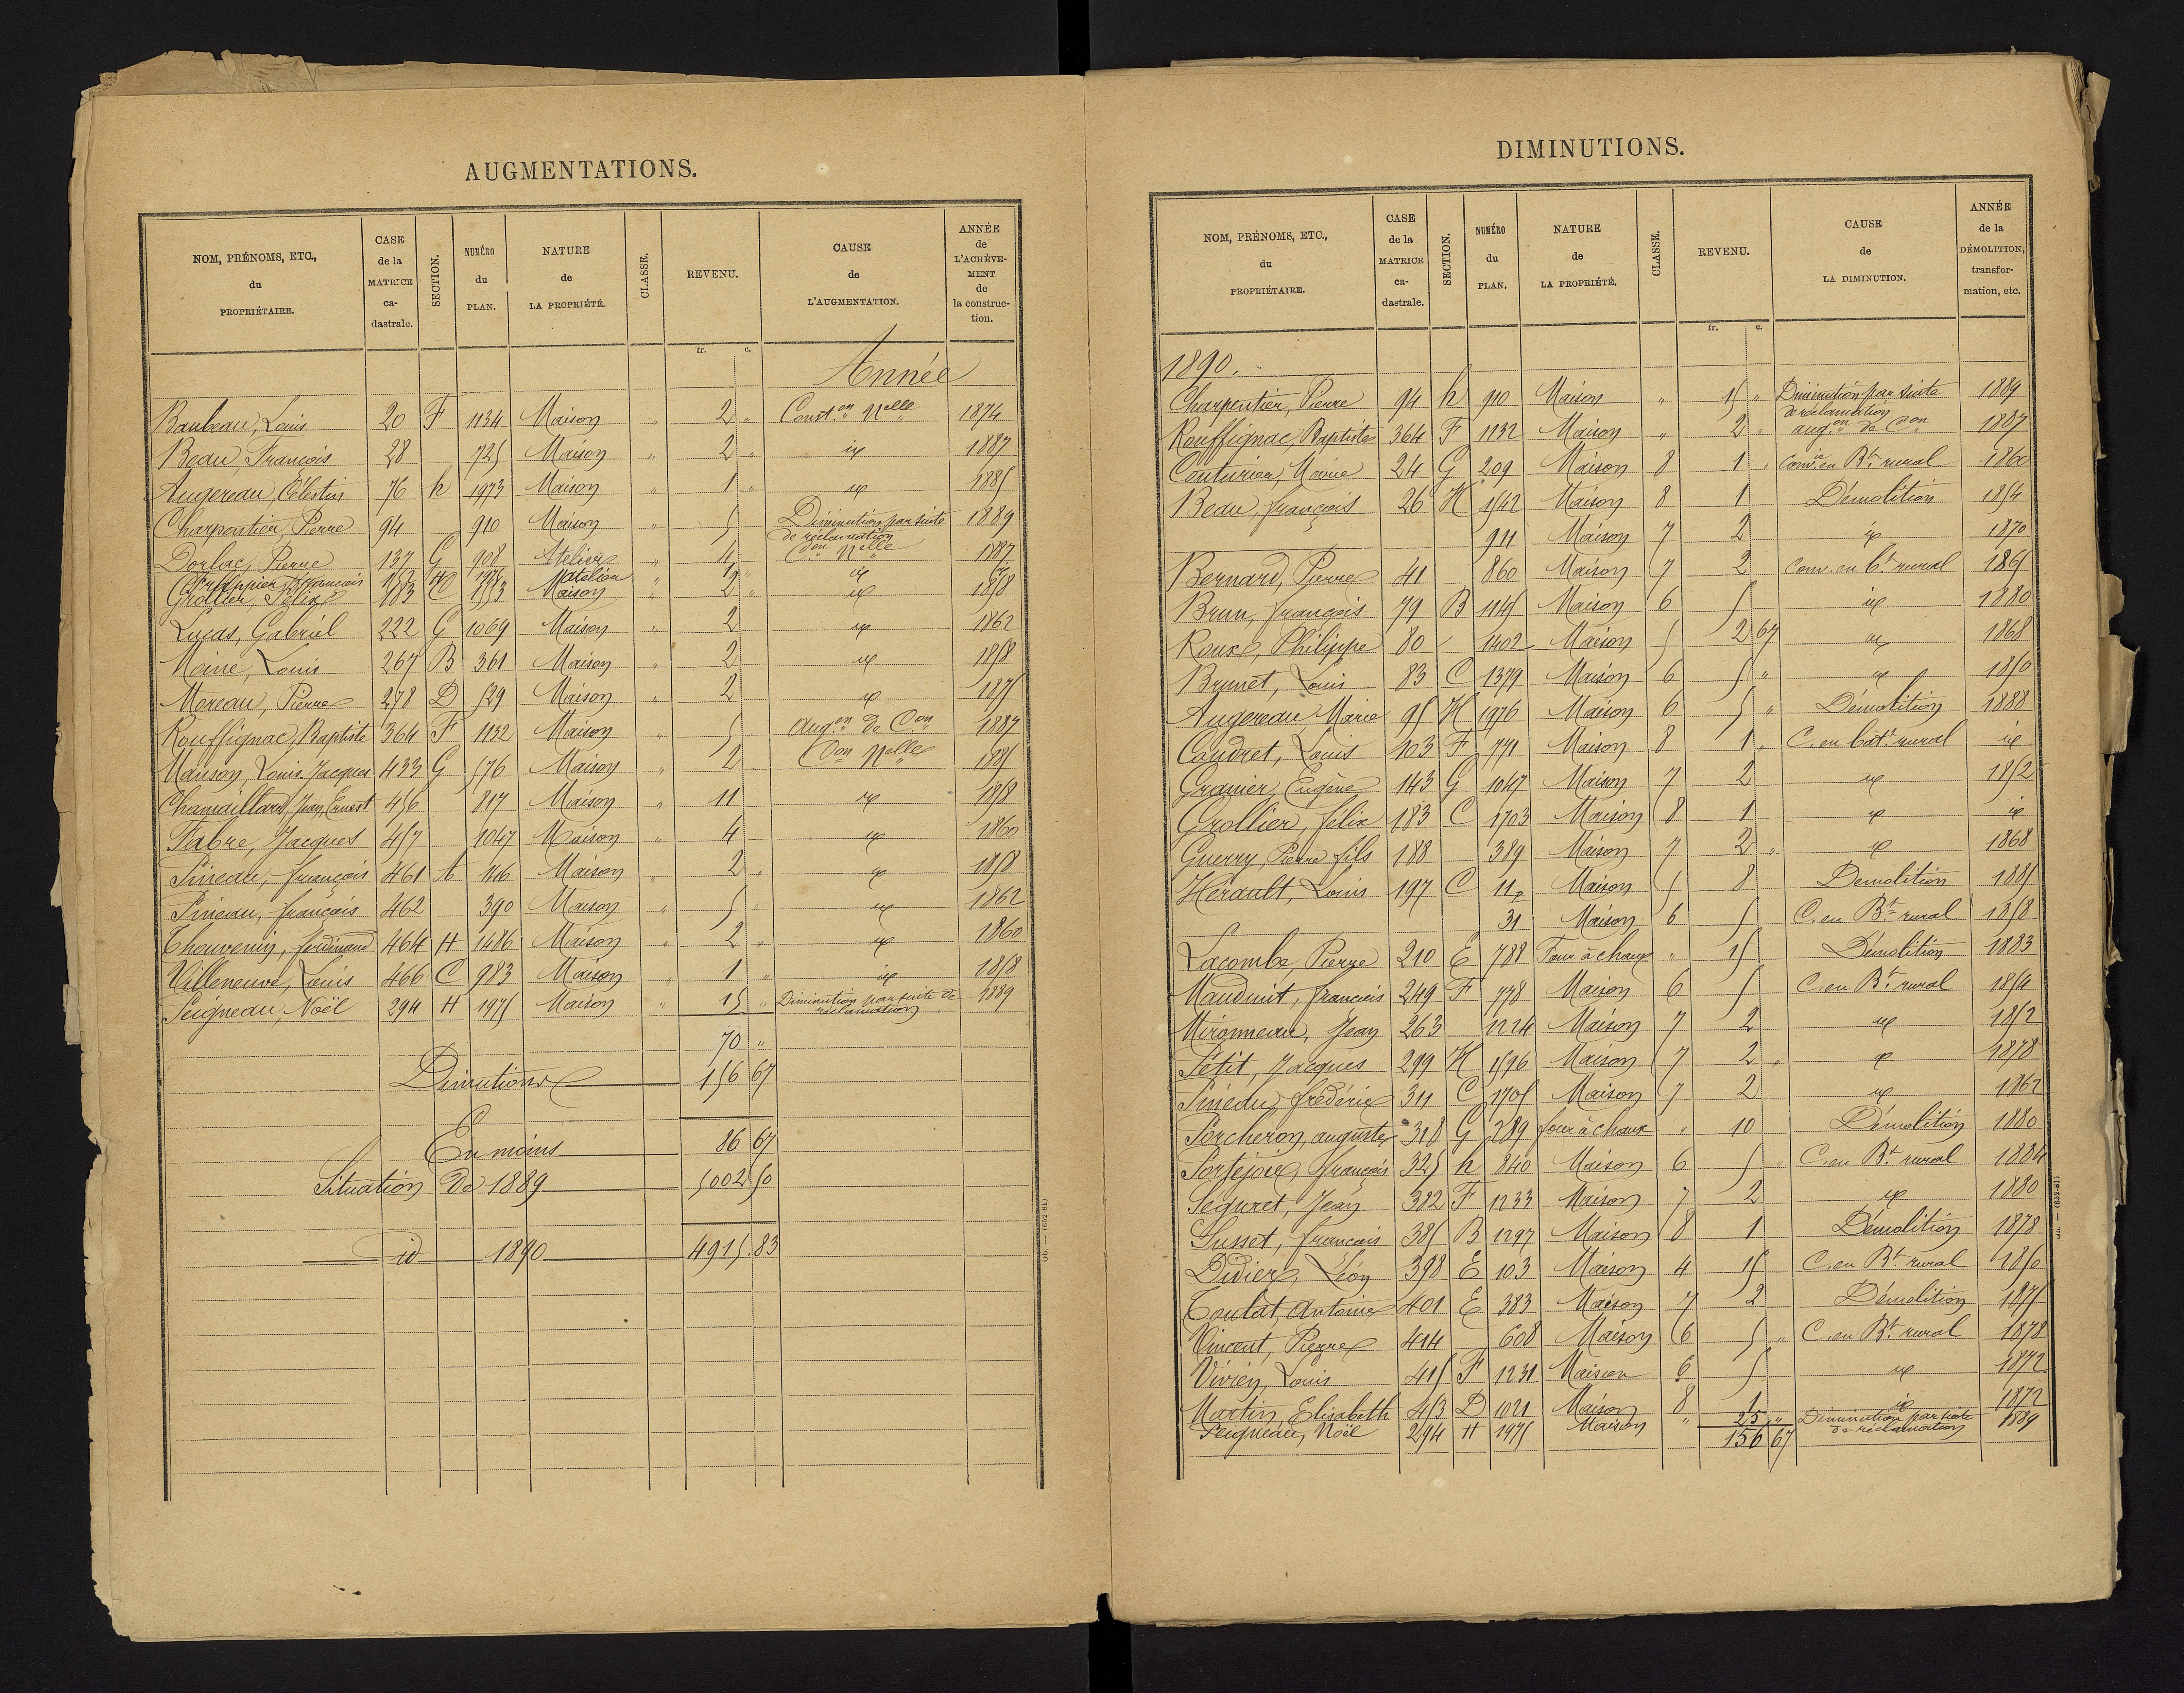 AUGMENTATIONS.
NOM, PRÉNOMS, ETC., du PROPRIÉTAIRE. | CASE de la MATRICE ca-dastrale. | SECTION. | NUMÉRO du PLAN. | NATURE de LA PROPRIÉTÉ. | CLASSE. | REVENU. | CAUSE de L'AUGMENTATION. | ANNÉE de L'ACHÈVE-MENT de la construc-tion.
fr. c.
Année
Baubeau, Louis 20 F 1134 Maison " 2 " Const.on Nelle 1874
Beau François 28 725 Maison " 2 " id 1887
Augereau, Célestin 76 h 1973 Maison " 1 " id 1885
Charpentier, Pierre 94 910 Maison " 5 Diminution par suite de réclamation 1889
Dorlac, Pierre 137 G 908 Atelier " 4 Con Nelle 1887
François atelier " id
Grollier, Félix 183 C Maison " 2 " id 1858
Lucas, Gabriel 222 G 1069 Maison " 2 id 1862
Moine, Louis 267 B 361 Maison " 2 id 1858
Moreau, Pierre 278 D 529 Maison " 2 id 1875
Rouffignac, Baptiste 364 F 1132 Maison " 5 Aug.on de Con 1887
Manson, Louis Jacques 433 G 576 Maison " 2 Con Nelle 1885
Chamaillard Jean Ernest 456 817 Maison " 11 id 1858
Fabre, Jacques 457 1047 Maison " 4 id 1860
Pineau, françois 461 A 1416 Maison " 2 " id 1858
Pineau, françois 462 390 Maison " 5 " id 1862
Thouvenin, ferdinand 464 H 1486 Maison " 2 " id 1860
Villeneuve, Louis 466 C 983 Maison " 1 " id 1858
Peigneau, Noël 294 H 1975 Maison " 15 " Diminution par suite de réclamation 1889
70 "
Diminutions 156 67
En moins 86 67
Situation de 1889 5002 50
id 1890 4915.83
DIMINUTIONS.
NOM, PRÉNOMS, ETC., du PROPRIÉTAIRE. | CASE de la MATRICE ca-dastrale. | SECTION. | NUMÉRO du PLAN. | NATURE de LA PROPRIÉTÉ. | CLASSE. | REVENU. | CAUSE de LA DIMINUTION. | ANNÉE de la DÉMOLITION, transfor-mation, etc.
fr. c.
1890.
Charpentier, Pierre 94 h 910 Maison " 15 " Diminution par suite de réclamation 1889
Rouffignac Baptiste 364 F 1132 Maison " 2 " aug.on de Con 1887
Couturier, Marie 24 G 209 Maison 8 1 " Conv. en Bt rural 1860
Beau, françois 26 H 1542 Maison 8 1 Démolition 1854
911 Maison 7 2 id 1870
Bernard, Pierre 41 860 Maison 7 2 Conv. en bt rural 1865
Brun, françois 79 B 1145 Maison 6 5 id 1880
Roux, Philippe 80 1402 Maison 5 2 67 id 1868
Brunet, Louis 83 C 1379 Maison 6 5 " id 1850
Augereau Marie 95 H 1976 Maison 6 5 " Démolition 1888
Coudret, Louis 103 F 771 Maison 8 1 " C. en bât. rural id
Granier, Eugène 143 G 1047 Maison 7 2 id 1852
Grollier, félix 183 C 1703 Maison 8 1 id id
Guerry, Pierre fils 188 389 Maison 7 2 " id 1868
Hérault, Louis 197 C 11p Maison 5 8 Démolition 1885
31 Maison 6 5 C. en Bt rural 1858
Lacombe, Pierre 210 E 788 Four à chaux " 15 Démolition 1883
Mauduit, françois 249 F 778 Maison 6 5 C. en Bt rural 1854
Mironneau, Jean 263 1224 Maison 7 2 id 1852
Petit, Jacques 299 H 1596 Maison 7 2 " id 1878
Pineau, frédéric 311 C 1705 Maison 7 2 id 1862
Porcheron, auguste 318 G 289 four à chaux " 10 Démolition 1880
Portejoie, françois 325 h 840 Maison 6 5 " C. en Bt rural 1884
Seguret, Jean 382 F 1233 Maison 7 2 id 1880
Susset, françois 385 B 1297 Maison 8 1 Démolition 1878
Didier, Léon 398 E 103 Maison 4 15 C. en Bt rural 1850
Toulat, Antoine 401 E 383 Maison 7 2 Démolition 1875
Vincent, Pierre 414 608 Maison 6 5 " C. en Bt rural 1878
Vivien, Louis 415 F 1231 Maison 6 5 id 1872
Martin, Elisabeth 453 D 1021 Maison 8 1 id 1872
Peigneau, Noël 294 H 1975 Maison " 25 " Diminution par suite de réclamation 1889
156 67